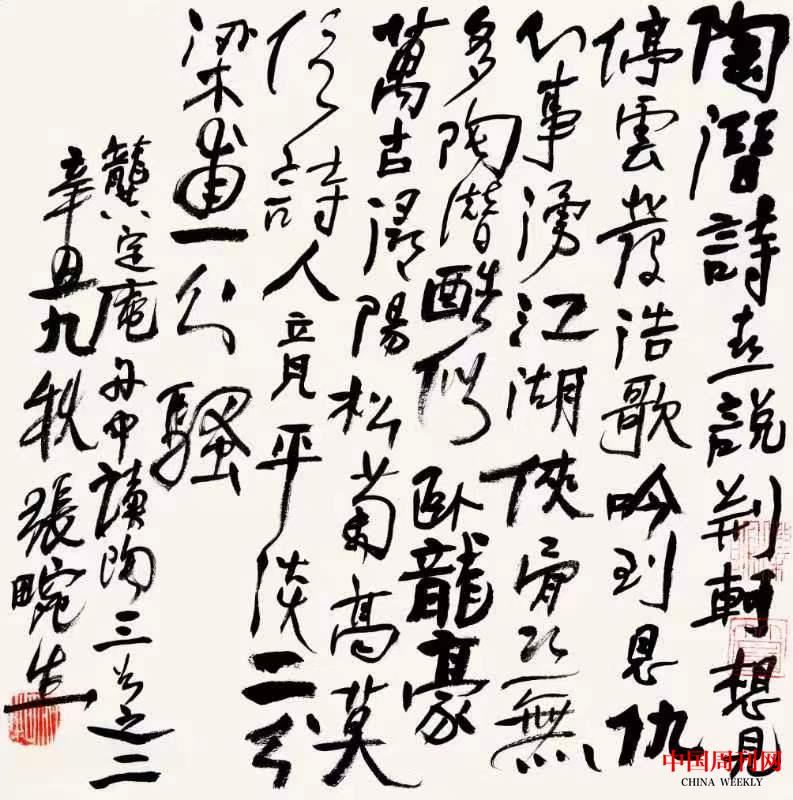 陶潛詩喜說荊軻想見
停雲發浩歌吟到恩仇
心事湧江湖俠骨恐無
多陶潛酷似臥龍豪
萬古潯陽松菊高莫
信詩人竟平淡二分
梁甫一分騷
龔定庵舟中讀陶三首之二
辛丑九秋張畹生
中国周刊网
CHINA WEEKLY